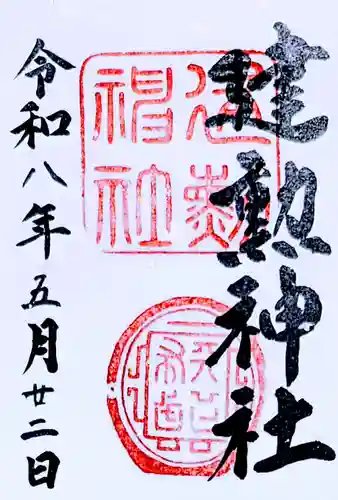 建勲神社
令和八年五月廿二日
建勲
神社
天下布武